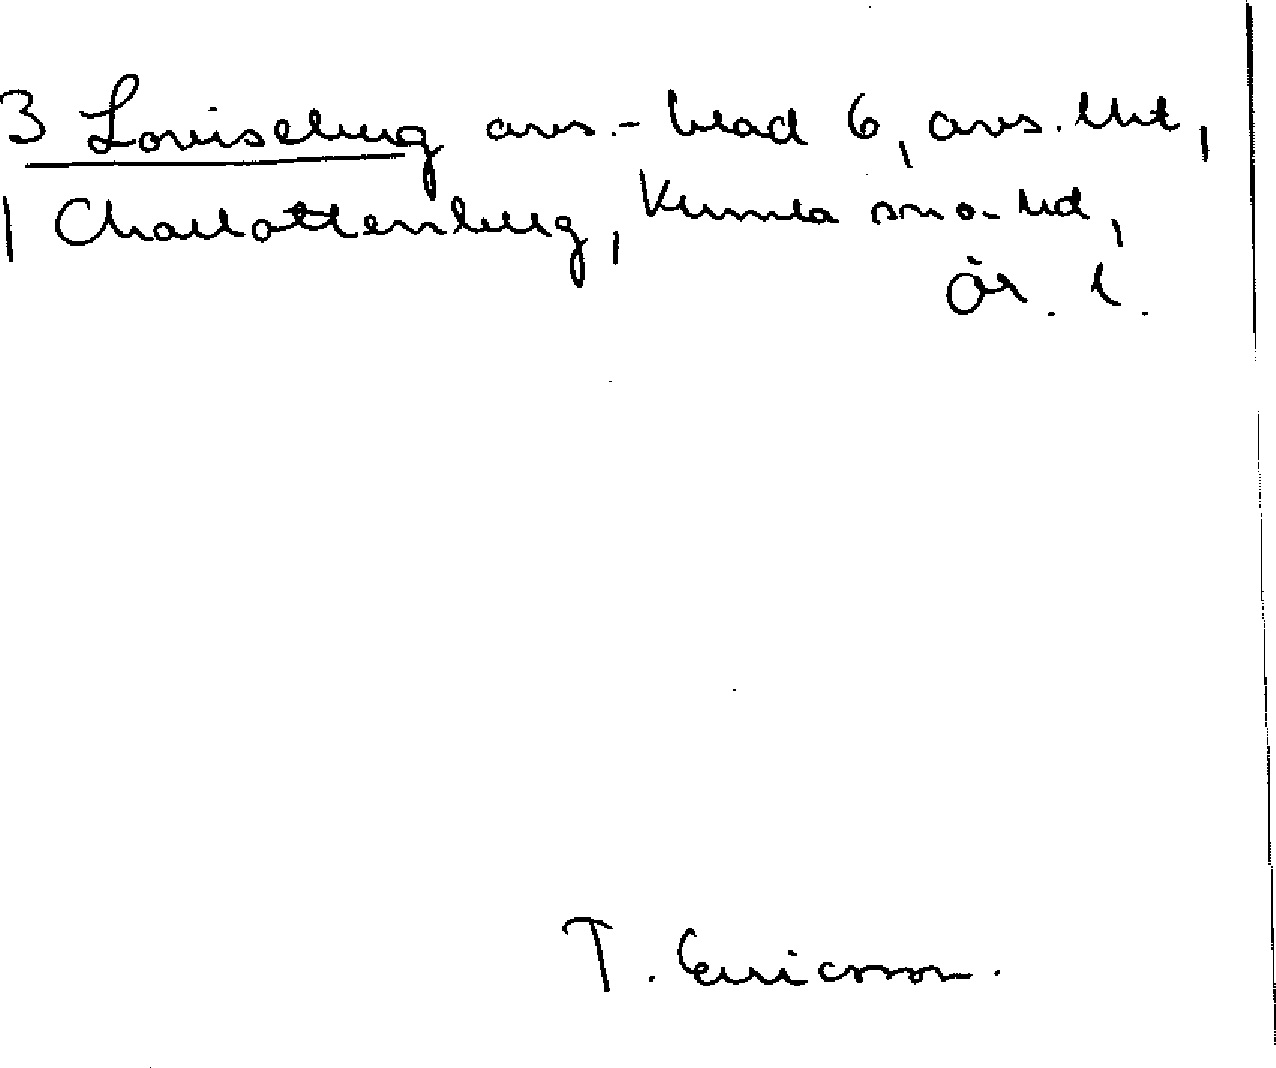 3 Louiseberg avs.-blad 6, avs. Utt,
1 Charlottenberg, Kumla sno-hd,
Ör. l.
T. Ericsson.